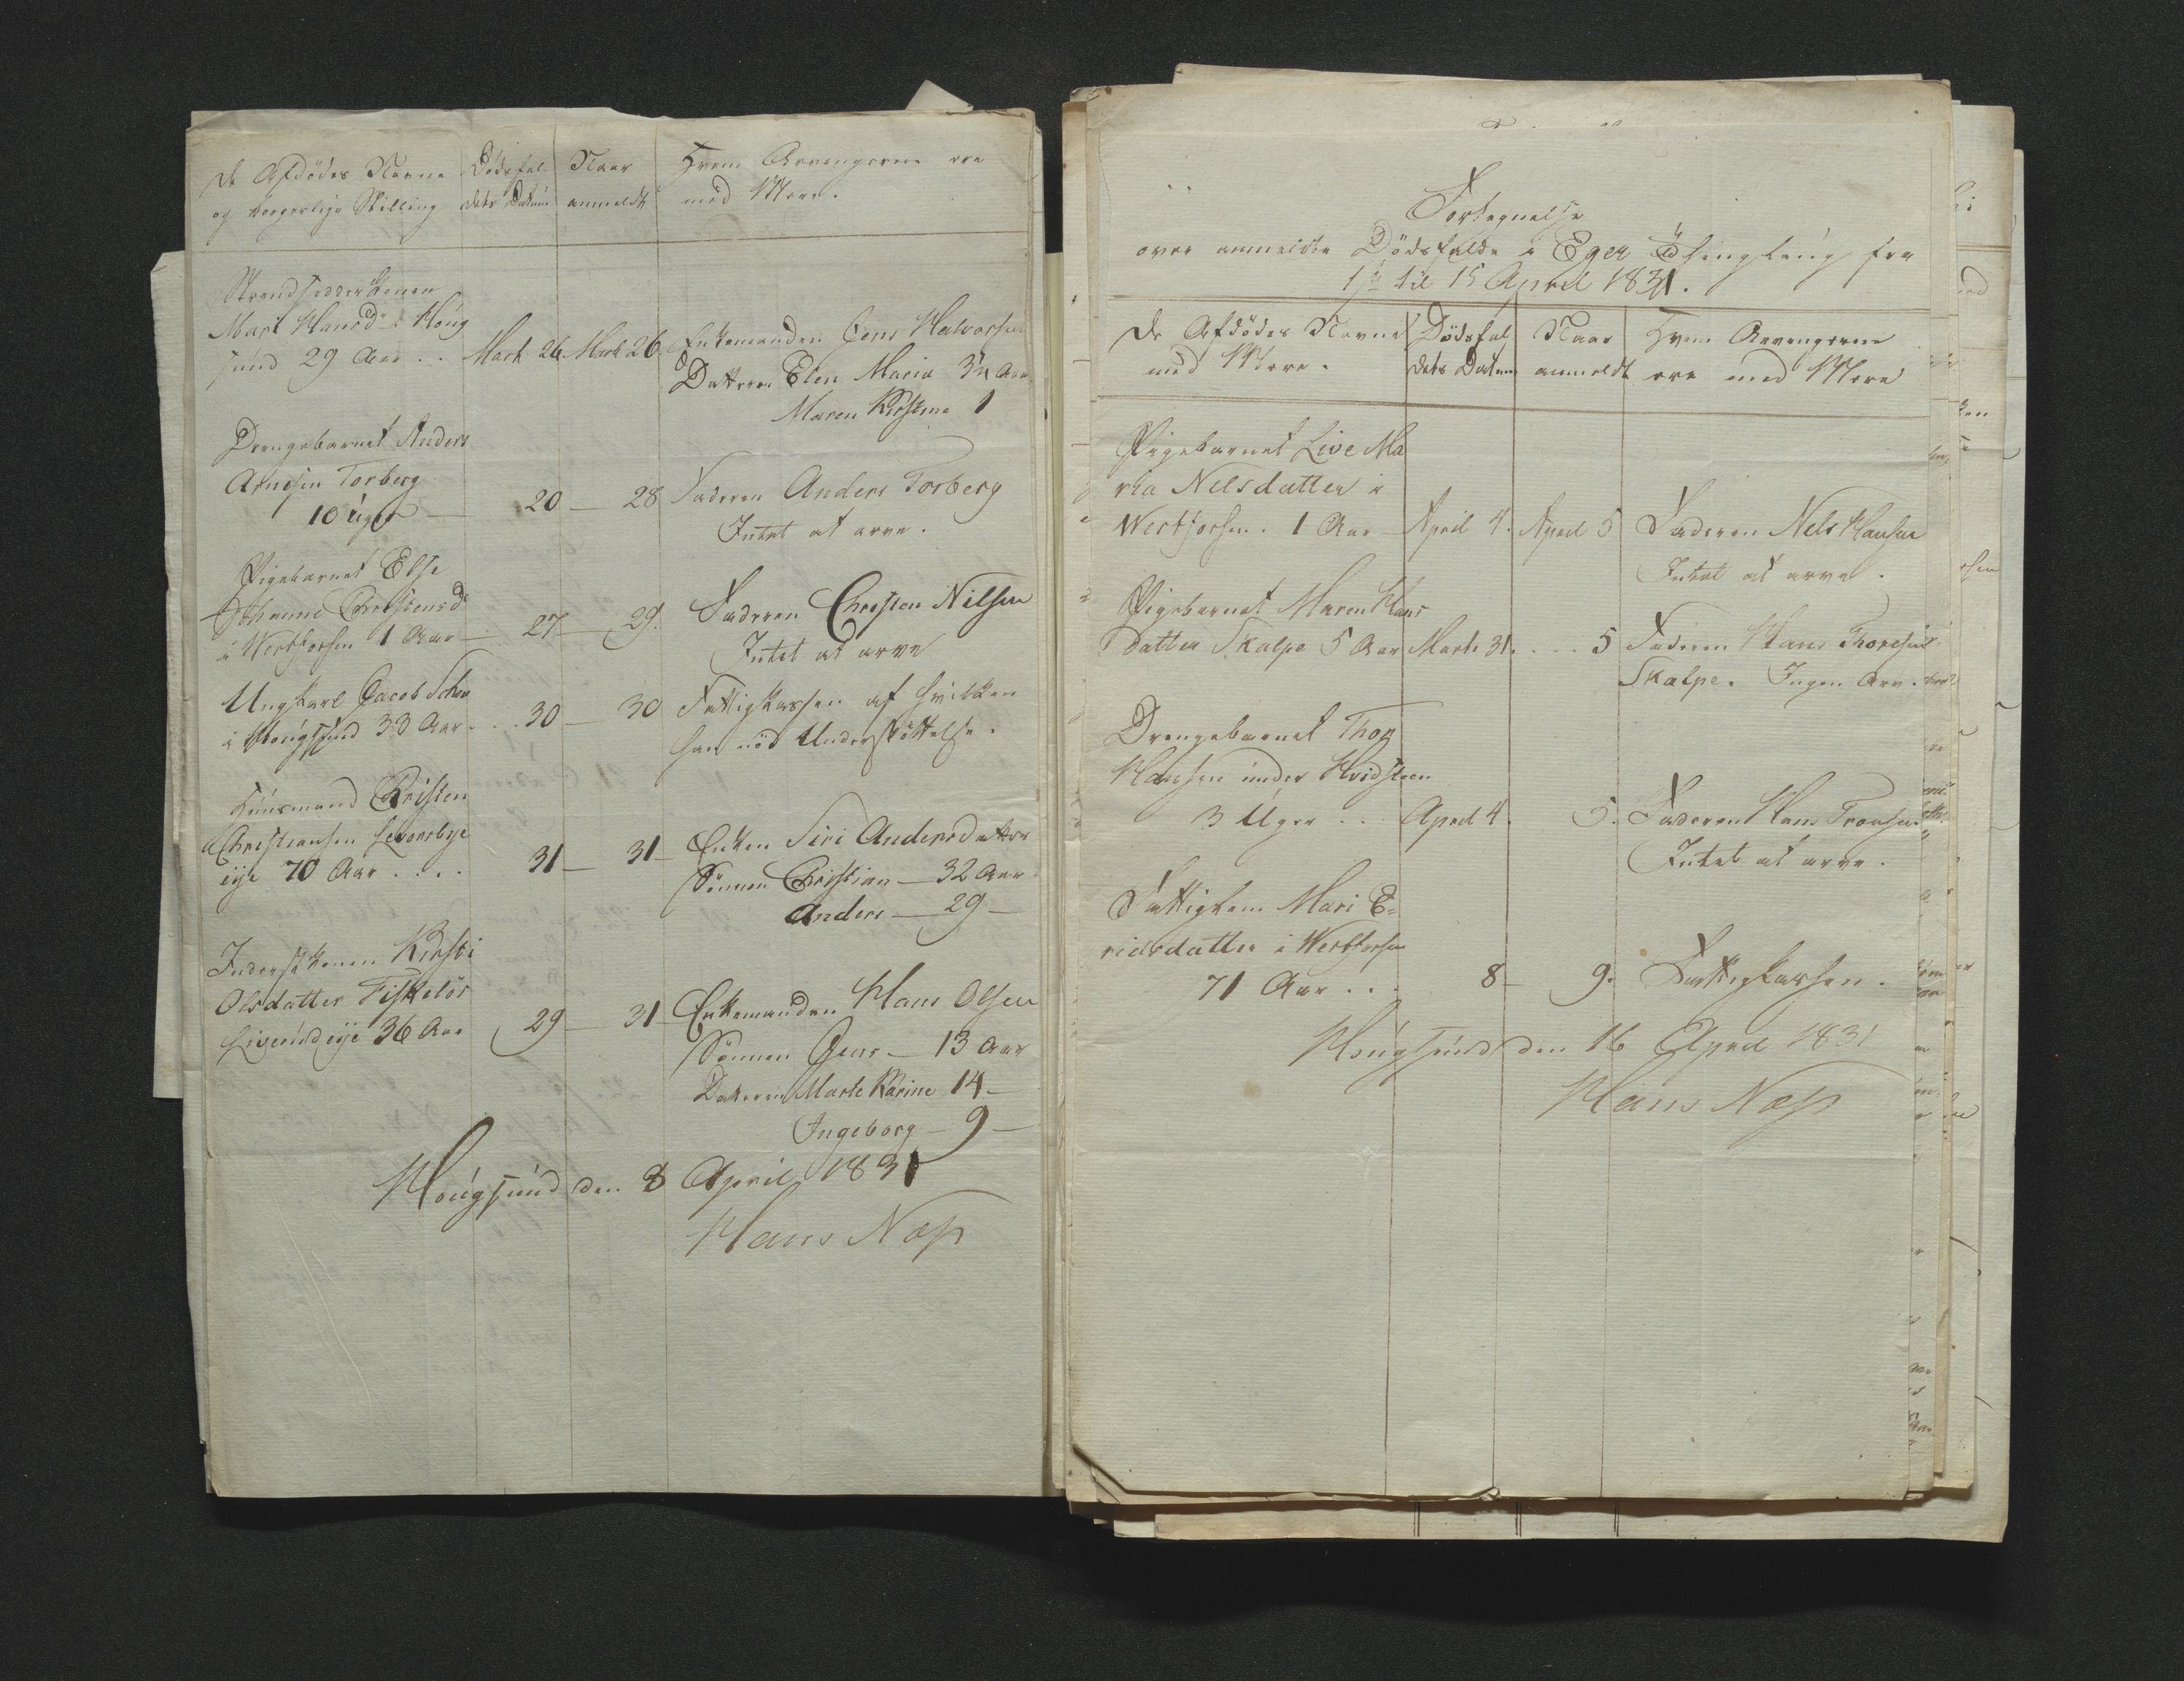 De Afdødes Navne Dødsfal- Naar Hvem Arvingerne ere
og borgerlige Stilling dets Datum anmeldt med Mere.
Strandsidderkonen
Mari Hansd: i Houg
sund 29 Aar .. Marts 26 Marts 26 Enkemanden Jens Halvorsen
Datteren Elen Maria 3¼ Aar
Maren Kirstine 1
Drengebarnet Anders
Arnesen Torberg
10 Uger — 20 — 28 Faderen Anders Torberg
Intet at arve.
Pigebarnet Else
Johanne Christensd:
i Vestfossen 1 Aar — 27 — 29. Faderen Christen Nilsen
Intet at arve
Ungkarl Jacob
i Hougsund 33 Aar .. 30 — 30 Fattigkassen af hvilken
han nød Understøttelse.
Huusmand Kristen
Christiansen
eije 70 Aar .... 31 — 31 — Enken Siri Andersdatter
Sønnen Christian — 32 Aar
Anders — 29 —
Inderstkonen Kirsti
Olsdatter Fiskelös
36 Aar 29 — 31 — Enkemanden Hans Olsen
Sønnen Jens — 13 Aar
Datteren Marte Karine 14 —
Ingeborg — 9 —
Hougsund den 8 April 1831
Hans Næss
Fortegnelse
over anmeldte Dødsfalde i Eger Thinglaug fra
1ste til 15 April 1831.
De Afdødes Navne Dødsfal Naar Hvem Arvingerne
med Mere. dets Datum anmeldt ere med Mere
Pigebarnet Live Ma
ria Nelsdatter i
Westfossen. 1 Aar — April 4. April 5 Faderen Nels Hansen
Intet at arve.
Pigebarnet Maren Hans
datter Skalpe 5 Aar Marts 31. ... 5 Faderen Hans Thoresen
Skalpe. Ingen Arv.
Drengebarnet Thor
Hansen under Hvidsteen
3 Uger .. April 4. 5. Faderen Hans
Intet at arve.
Fattiglem Mari E-
riksdatter i Westfossen
71 Aar ... 8 — 9. Fattigkassen.
Hougsund den 16 April 1831
Hans Næss